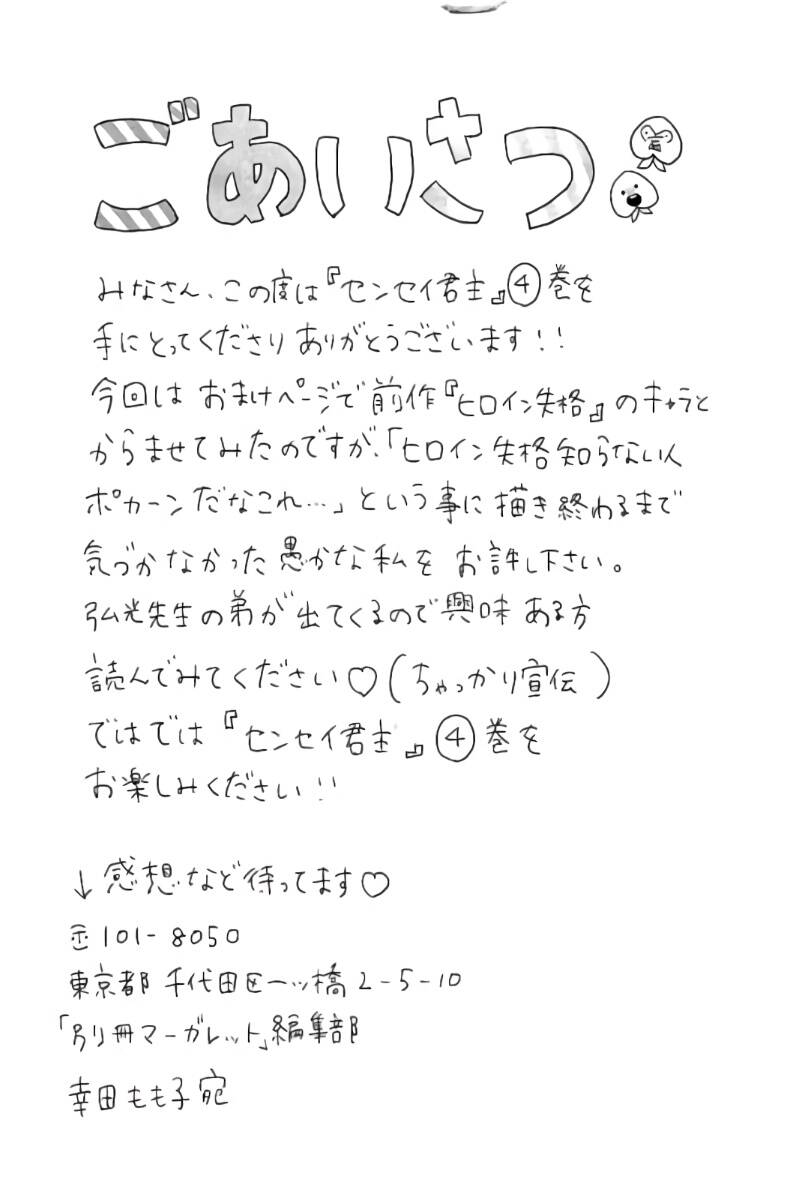 ごあいさつ
みなさん、この度は『センセイ君主』④巻を
手にとってくださりありがとうございます!!
今回は おまけページで前作『ヒロイン失格』のキャラと
からませてみたのですが、「ヒロイン失格知らない人
ポカーンだなこれ…」という事に描き終わるまで
気づかなかった愚かな私をお許し下さい。
弘光先生の弟が出てくるので興味ある方
読んでみてください♡(ちゃっかり宣伝)
ではでは『センセイ君主』④巻を
お楽しみください!!
↓感想など待ってます♡
〒101-8050
東京都千代田区一ツ橋2-5-10
「別冊マーガレット」編集部
幸田もも子宛